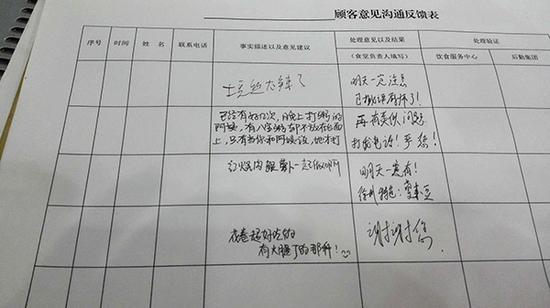 顾客意见沟通反馈表
序号 时间 姓 名 联系电话 事实描述以及意见建议 处理意见以及结果 处理验证
(食堂负责人填写) 饮食服务中心 后勤集团
土豆丝太辣了
明天一定注意
已经有好几次,晚上打粥的
阿姨,有八宝粥都不放在台面
上,只有当你和阿姨说,她才打
再有类似问题
打我电话!严惩!
红烧肉
一起做啊
明天一定有!
花卷超好吃的
有火腿丁的那种!
谢谢您